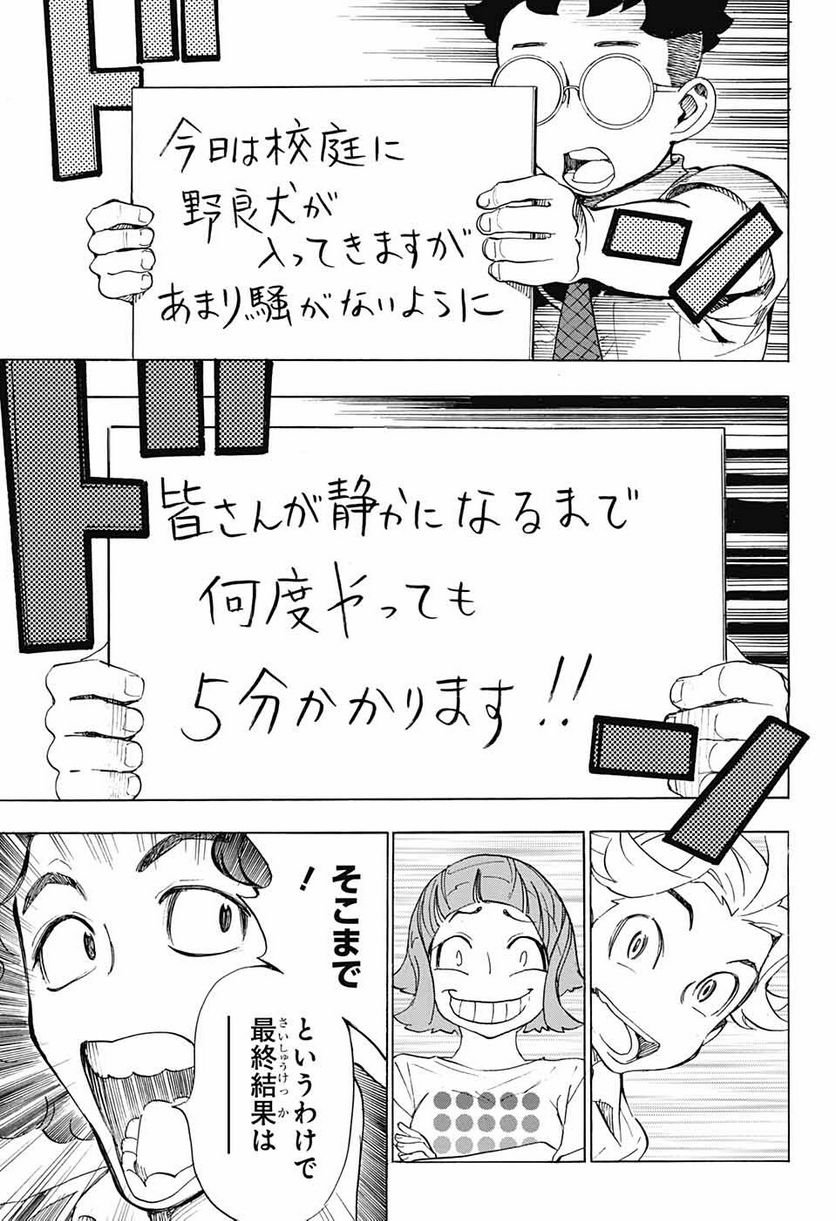 ドドン
今日は校庭に
野良犬が
入ってきますが
あまり騒がないように
ドドン
皆さんが静かになるまで
何度やっても
5分かかります!!
そこまで!
というわけで
最終結果は
さいしゅうけっか